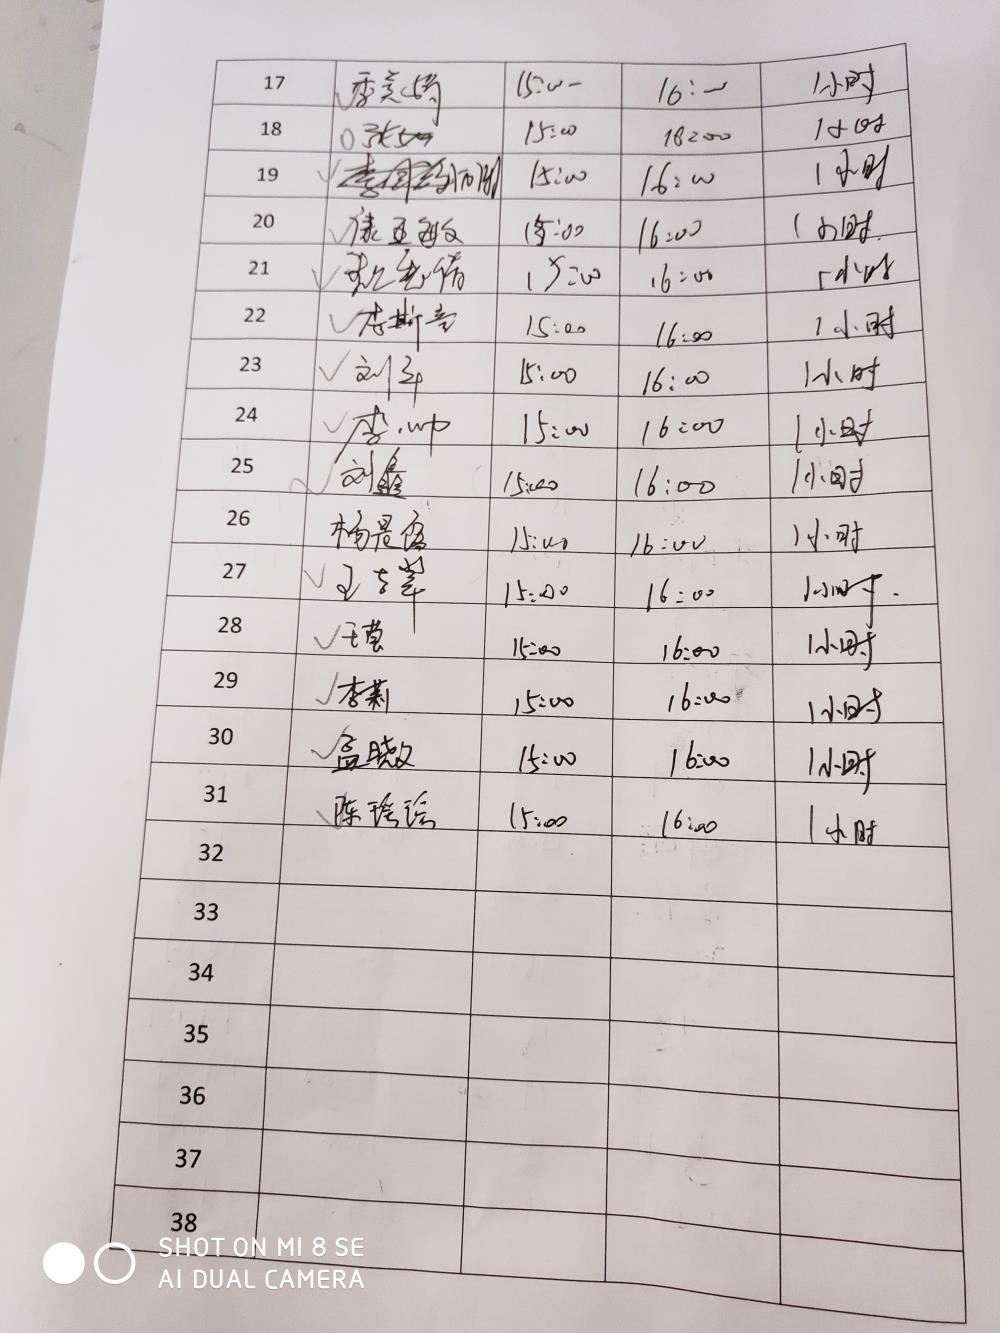 17 15:00 16:00 1小时
18 15:00 18:00 1小时
19 15:00 16:00 1小时
20 康亚敏 15:00 16:00 1小时
21 15:00 16:00 1小时
22 李斯 15:00 16:00 1小时
23 刘军 15:00 16:00 1小时
24 李 15:00 16:00 1小时
25 刘鑫 15:00 16:00 1小时
26 杨晨 15:00 16:00 1小时
27 王 15:00 16:00 1小时.
28 王莹 15:00 16:00 1小时
29 李莉 15:00 16:00 1小时
30 孟晓 15:00 16:00 1小时
31 陈 15:00 16:00 1小时
32
33
34
35
36
37
38
SHOT ON MI 8 SE
AI DUAL CAMERA